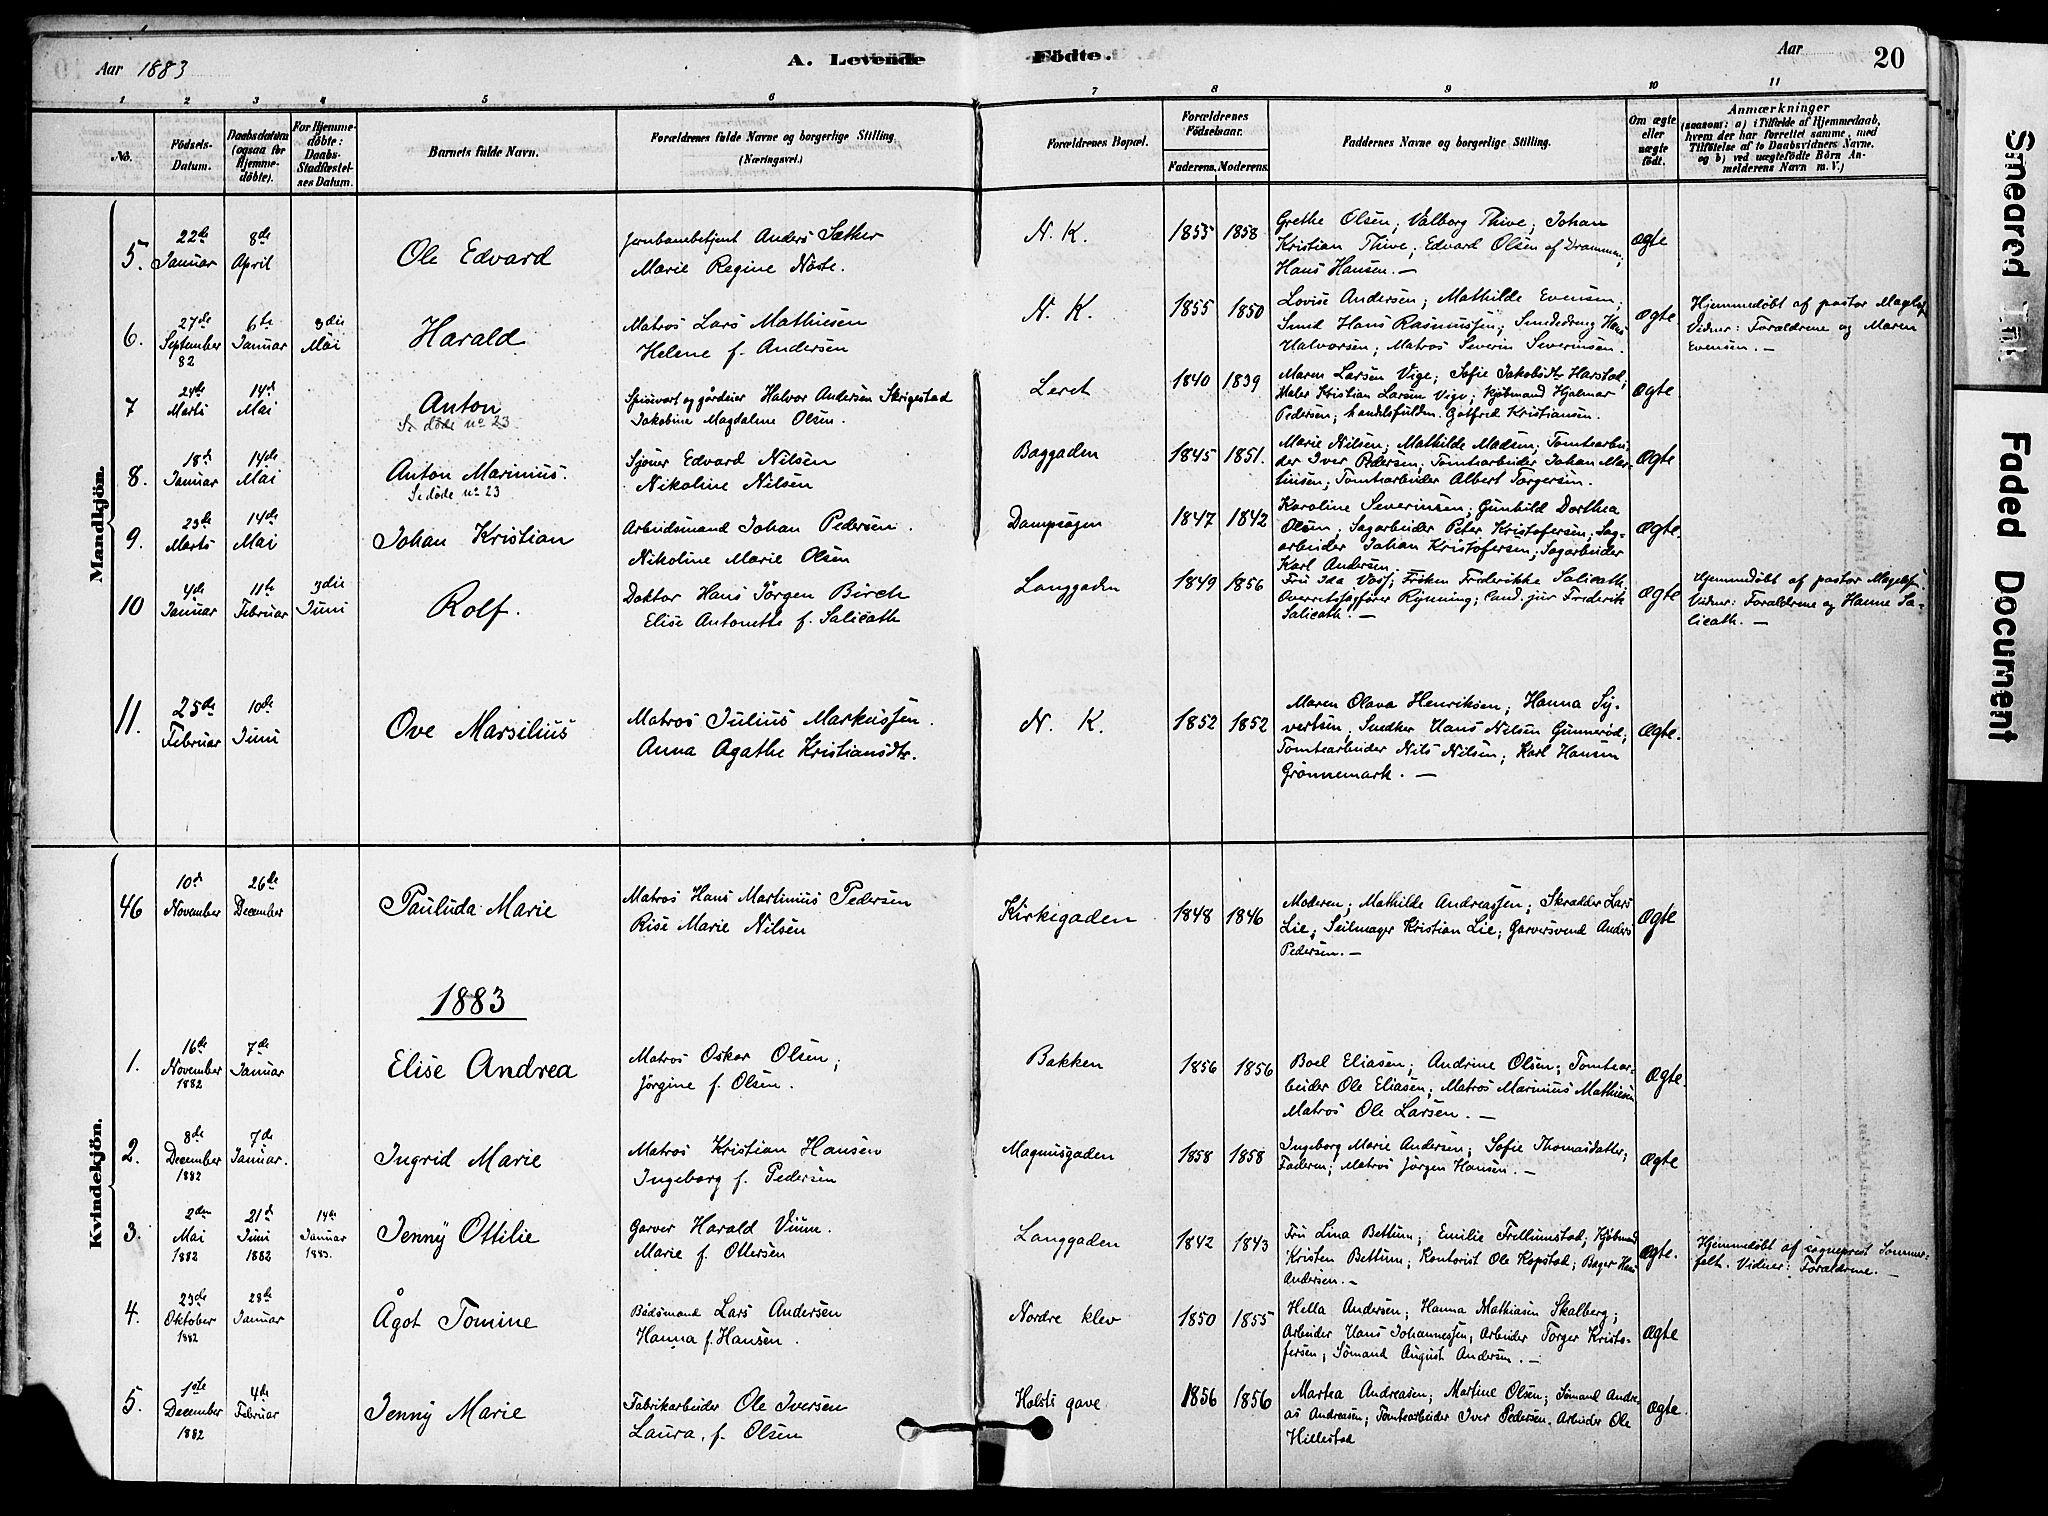 Aar 1883
A. Levende Födte.
Aar
20
1 2 3 4 5 6 7 8 9 10 11
No.
Födsels-Datum.
Daabsdatum (ogsaa for Hjemmedöbte).
For Hjemmedöbte: Daabs-Stadfæstelses Datum.
Barnets fulde Navn.
Forældrenes fulde Navne og borgerlige Stilling. (Næringsvei.)
Forældrenes Bopæl.
Forældrenes Födselsaar.
Faderens. Moderens.
Faddernes Navne og borgerlige Stilling.
Om ægte eller uægte födt.
Anmærkninger
(saasom: a) i Tilfælde af Hjemmedaab, hvem der har forrettet samme, med Tilföielse af to Daabsvidners Navne. og b) ved uægtefödte Börn Anmelderens Navn m. V.)
Mandkjön.
5. 22de Januar 8de April
Ole Edvard
Jernbanebetjent Anders Sæther
Marie Regine Nöste.
N. K.
1855 1858
Grethe Olsen; Valborg Thive; Johan
Kristian Thive; Edvard Olsen af Drammen;
Hans Hansen. —
Ægte
6. 27de September 82 6te Januar 3die Mai
Harald
Matros Lars Mathiesen
Helene f. Andersen
N. K.
1855 1850
Lovise Andersen; Mathilde Evensen;
Smed Hans Rasmussen; Smededreng Hans
Halvorsen; Matros Severin Severinsen.
Ægte
Hjemmedöbt af pastor Magelss.
Vidner: Forældrene og Maren
Evensen. —
7 24de Marts 14de Mai
Anton
Se döde no 23
Spisevært og gårdeier Halvor Andersen Skrigestad
Jakobine Magdalene Olsen.
Leret
1840 1839
Maren Larsen Vige; Sofie Jakobsdtr Harstad;
Maler Kristian Larsen Vige; Kjöbmand Hjalmar
Pedersen; handelsfuldm. Gotfred Kristiansen.
Ægte
8. 18de Januar 14de Mai
Anton Marinius.
Se döde no 23
Sjouer Edvard Nilsen
Nikoline Nilsen
Baggaden
1845 1851.
Marie Nilsen; Mathilde Madsen; Tomtearbei-
der Iver Pedersen; Tomtearbeider Johan Mar-
tinsen; Tomtearbeider Albert Torgersen.
Ægte
9. 23de Marts 14de Mai
Johan Kristian
Arbeidsmand Johan Pedersen.
Nikoline Marie Olsen
Dampsagen
1847 1842
Karoline Severinsen; Gunhild Dorthea
Olsen; Sagarbeider Peter Kristofersen; Sag-
arbeider Johan Kristofersen; Sagarbeider
Karl Andersen.
Ægte.
10 4de Januar 11te Februar 3die Juni
Rolf.
Doktor Hans Jörgen Birch
Elise Antonette f. Salicath
Langgaden
1849 1856
Fru Ida Vass; Fröken Frederikke Salicath
Overretssagförer Rynning; Cand. jur Frederik
Salicath. —
Ægte
Hjemmedöbt af pastor Magelss.
Vidner: Forældrene og Hanne Sa-
licath. —
11. 25de Februar 10de Juni
Ove Marsilius
Matros Julius Markussen.
Anna Agathe Kristiansdtr.
N. K.
1852 1852
Maren Olava Henriksen; Hanna Sy-
vertsen; Snedker Hans Nilsen Gunnerød;
Tomtearbeider Nils Nilsen; Karl Hansen
Grönnemark. —
Ægte.
Kvindekjön.
46 10de November 26de December
Pauluda Marie
Matros Hans Martinius Pedersen
Rise Marie Nilsen
Kirkegaden
1848 1846
Moderen; Mathilde Andreassen; Skrædder Lars
Lie; Seilmager Kristian Lie; Garversvend Anders
Pedersen. —
Ægte
1883
1. 16de November 1882 7de Januar
Elise Andrea
Matros Oskar Olsen;
Jörgine f. Olsen.
Bakken
1856 1856
Boel Eliasen; Andrine Olsen; Tomtear-
beider Ole Eliasen; Matros Marinius Mathiesen
Matros Ole Larsen. —
Ægte.
2. 8de December 1882 7de Januar.
Ingrid Marie
Matros Kristian Hansen
Ingeborg f. Pedersen
Magnusgaden
1858 1858
Ingeborg Marie Andersen; Sofie Thomasdatter;
Faderen; Matros Jörgen Hansen. —
Ægte
3. 2den Mai 1882 21de Juni 1882 14de Januar 1883.
Jenny Ottilie
Garver Harald Vium.
Marie f. Ottersen
Langgaden
1842 1843
Fru Lina Bettum; Emilie Trellumstad; Kjöbmand
Kristen Bettum; Kontorist Ole Kopstad; Bager Hans
Andersen. —
Ægte.
Hjemmedöbt af sogneprest Sommer-
felt. Vidner: Forældrene. —
4. 23de Oktober 1882 28de Januar
Ågot Tomine
Bådsmand Lars Andersen
Hanna f. Hansen.
Nordre klev
1850 1855
Hella Andersen; Hanna Mathiasen Skalberg;
Arbeider Hans Johannessen; Arbeider Torger Kristo-
fersen; Sömand August Andersen. —
Ægte
5. 1ste December 1882 4de Februar
Jenny Marie
Fabrikarbeider Ole Iversen
Laura. f. Olsen
Holsts gave
1856 1856
Martea Andreasen; Martine Olsen; Sömand Andre-
as Andreasen; Tomtearbeider Iver Pedersen. Arbeider Ole
Hillestad
Ægte.
Smeared
Faded Document